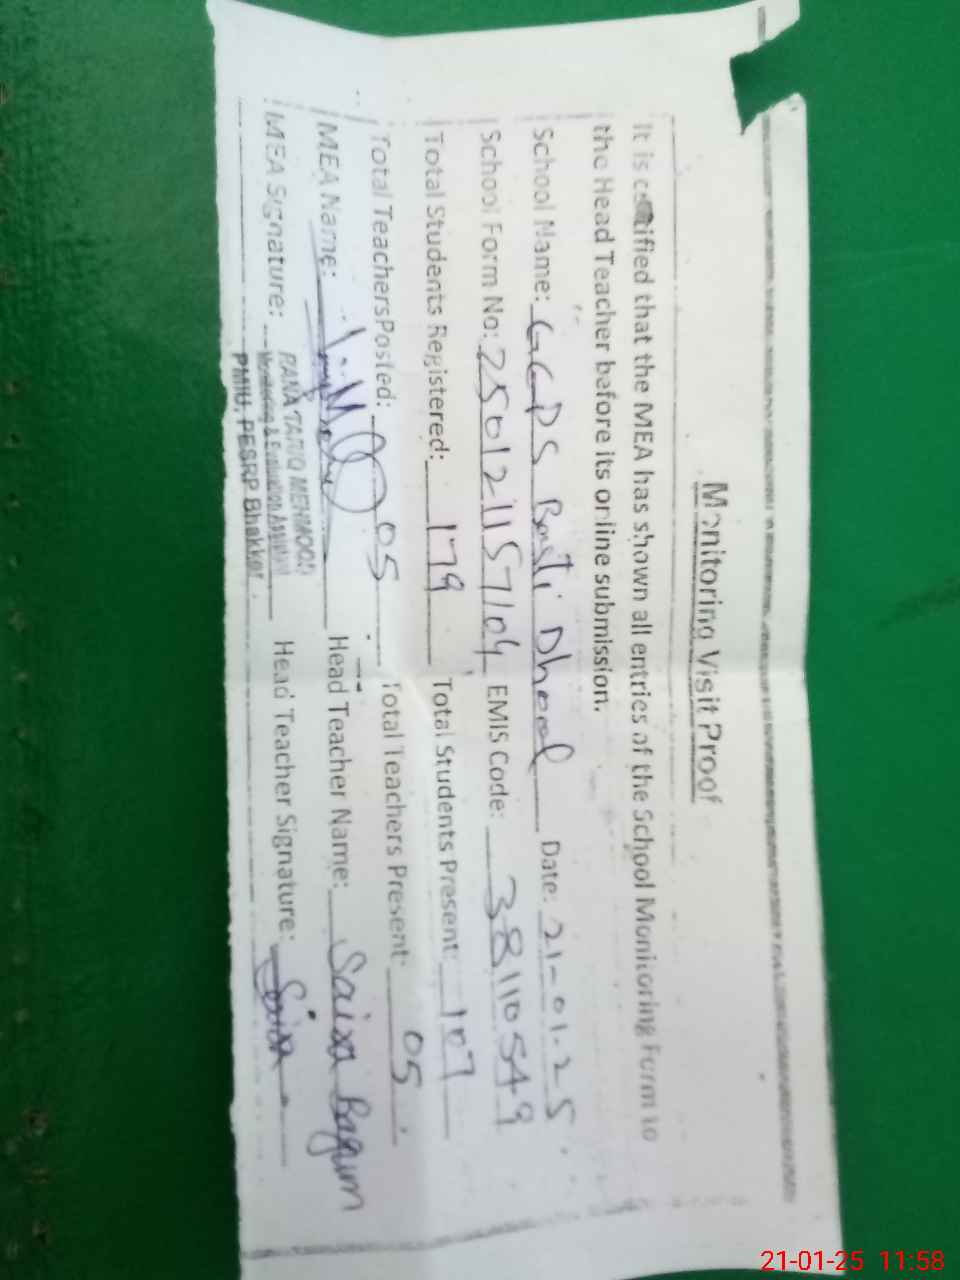 Monitoring Visit Proof
It is certified that the MEA has shown all entries of the School Monitoring Form to
the Head Teacher before its online submission.
School Name: GGPS Basti Dhool Date: 21-01-25
School Form No: 250121157104 EMIS Code: 38110549
Total Students Registered: 179 Total Students Present: 107
Total TeachersPosted: 05 Total Teachers Present: 05
MEA Name: Head Teacher Name: Saira Bagum
MEA Signature: Head Teacher Signature: Saira
RANA TARIQ MEHMOOD
Monitoring & Evaluation Assistant
PMIU, PESRP Bhakkar
21-01-25 11:58